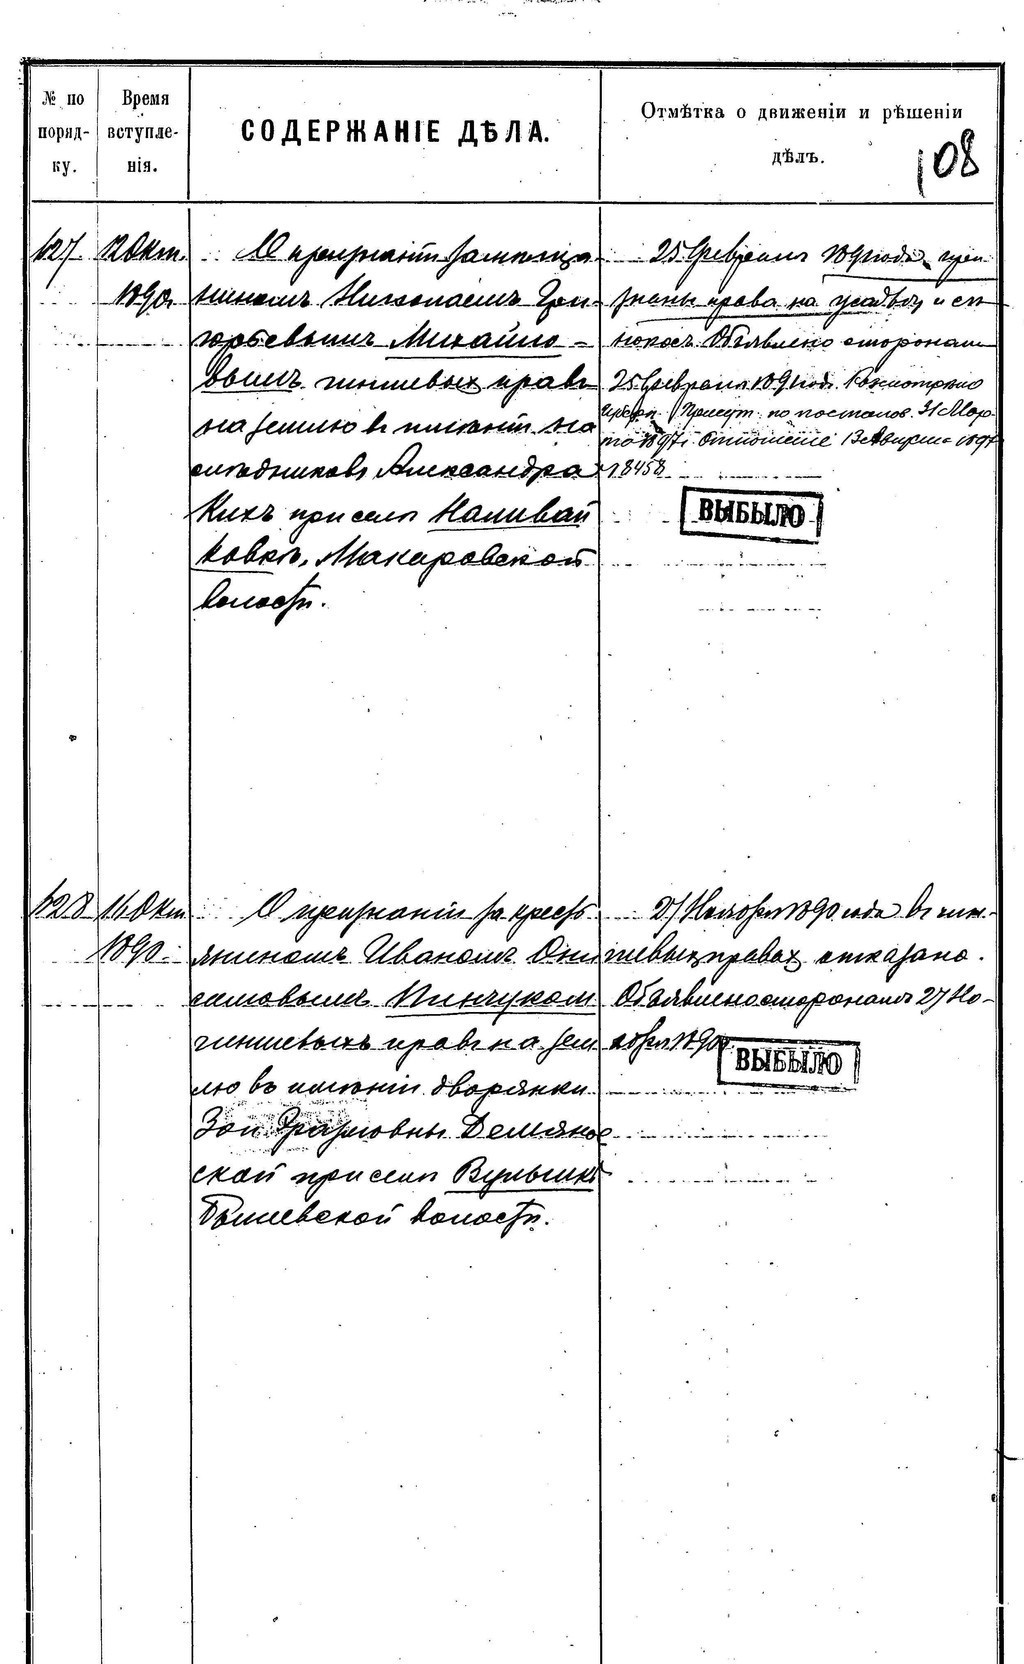 № по поряд- ку.
Время вступле- нія.
СОДЕРЖАНІЕ ДѢЛА.
Отмѣтка о движеніи и рѣшеніи дѣлъ.
108
627.
12 Окт.
1890г.
О признаніи за мѣща-
ниномъ Николаемъ Гри-
горьевымъ Михайло-
вымъ чиншевыхъ правъ
на землю въ имѣніи на
слѣдниковъ Александра
Кихъ при селѣ Наливай
ковкѣ, Макаровской
волости.
25 Февраля 1891 года при
знаны права на усадьбу и сѣ
нокосъ. Объявлено сторонамъ
25 Февраля 1891 года. Разсмотрѣно
Губерн. Присут. по постанов. 31 Мар-
та 1897г. Отношение 13 Апрѣля 1897
№ 8458
ВЫБЫЛО
628
16 Окт
1890.
О признаніи за крестъ
яниномъ Иваномъ Они
симовымъ Пинчукомъ
чиншевыхъ правъ на зем
лю въ имѣніи дворянки
Зои Демянов
ской при селѣ Вульшкѣ
Бышевской волости.
27 Ноября 1890 года въ чин-
шевыхъ правахъ отказано.
Объявлено сторонамъ 27 Но-
ября 1890г.
ВЫБЫЛО